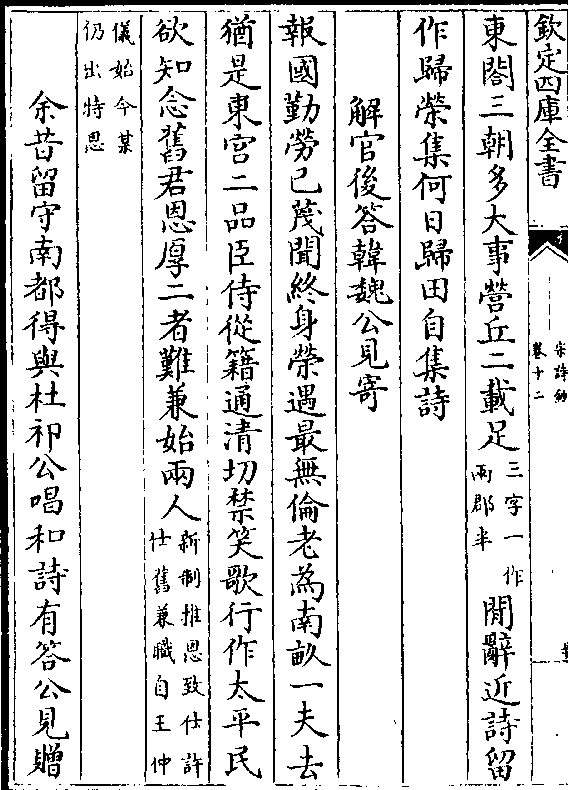 欽定四庫全書
宋詩鈔
卷十二
東閣三朝多大事營丘二載足三字一作兩郡半閒辭近詩留
作歸榮集何日歸田自集詩
解官後答韓魏公見寄
報國勤勞已蔑聞終身榮遇最無倫老為南畝一夫去
猶是東宫二品臣侍從籍通清切禁笑歌行作太平民
欲知念舊君恩厚二者難兼始兩人新制推恩致仕許仕舊兼職自王仲
儀始今某仍出特恩
余昔留守南都得與杜祁公唱和詩有答公見贈